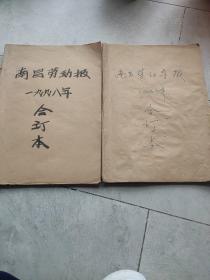 南昌劳动报
一九九八年
合订本
南昌劳动报
合订本